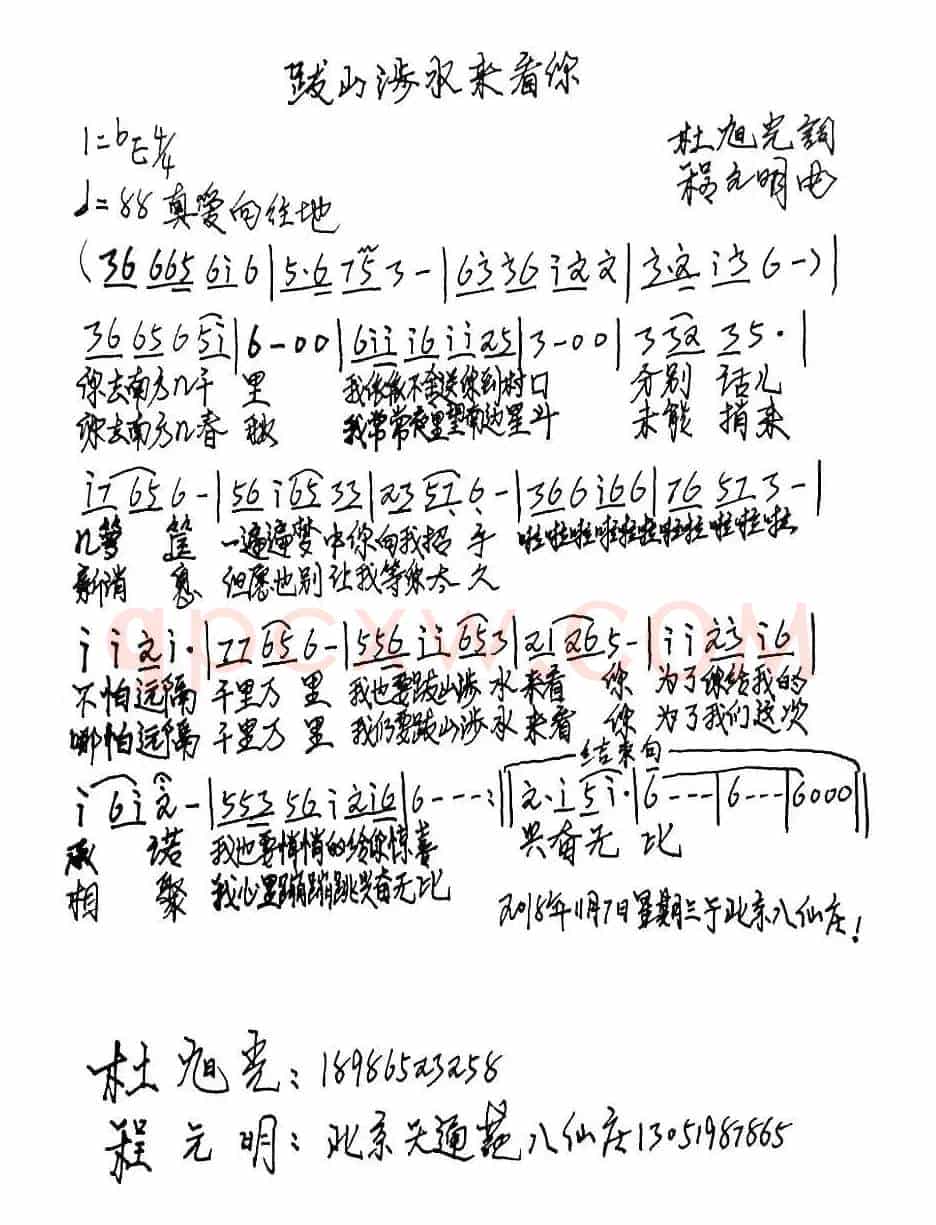 跋山涉水来看你
1=bE 4/4
杜旭光詞
♩=88 真爱向往地
程元明曲
(36 665 6i 6|5·6 75 3 -|63 36 i2 2|3·2 i3 6 -)|
36 65 6 5i|6 - 0 0|6ii i6 ii 25|3 - 0 0|3 32 35·|
你去南方几千 里 我依依不舍送你到村口 分别 话儿
你去南方几春 秋 我常常夜里望南边星斗 未能 捎来
i7 65 6 -|56 i65 33|23 57 6 -|366 i66|76 57 3 -|
几箩 筐 一遍遍梦中你向我招 手 啦啦啦啦啦啦啦啦啦啦啦
新消 息 但愿也别让我等你太 久
qpcxw.com
i i 2 i·|77 65 6 -|556 ii 653|2i 265 -|i i 23 i6|
不怕远隔 千里万 里 我也要跋山涉 水 来看 你 为了你给我的
哪怕远隔 千里万 里 我们要跋山涉 水 来看 你 为了我们这次
结束句
i 6i 2 -|553 56 i 2i6|6 - - -:‖2·i 5 i·|6 - - -|6 - - -|6000‖
承 诺 我也要悄悄的给你惊喜 兴奋无 比
相 聚 我心里蹦蹦跳兴奋无比
2018年11月7日星期三于北京八仙庄!
杜旭光:18986523258
程元明:北京天通苑八仙庄13051987865